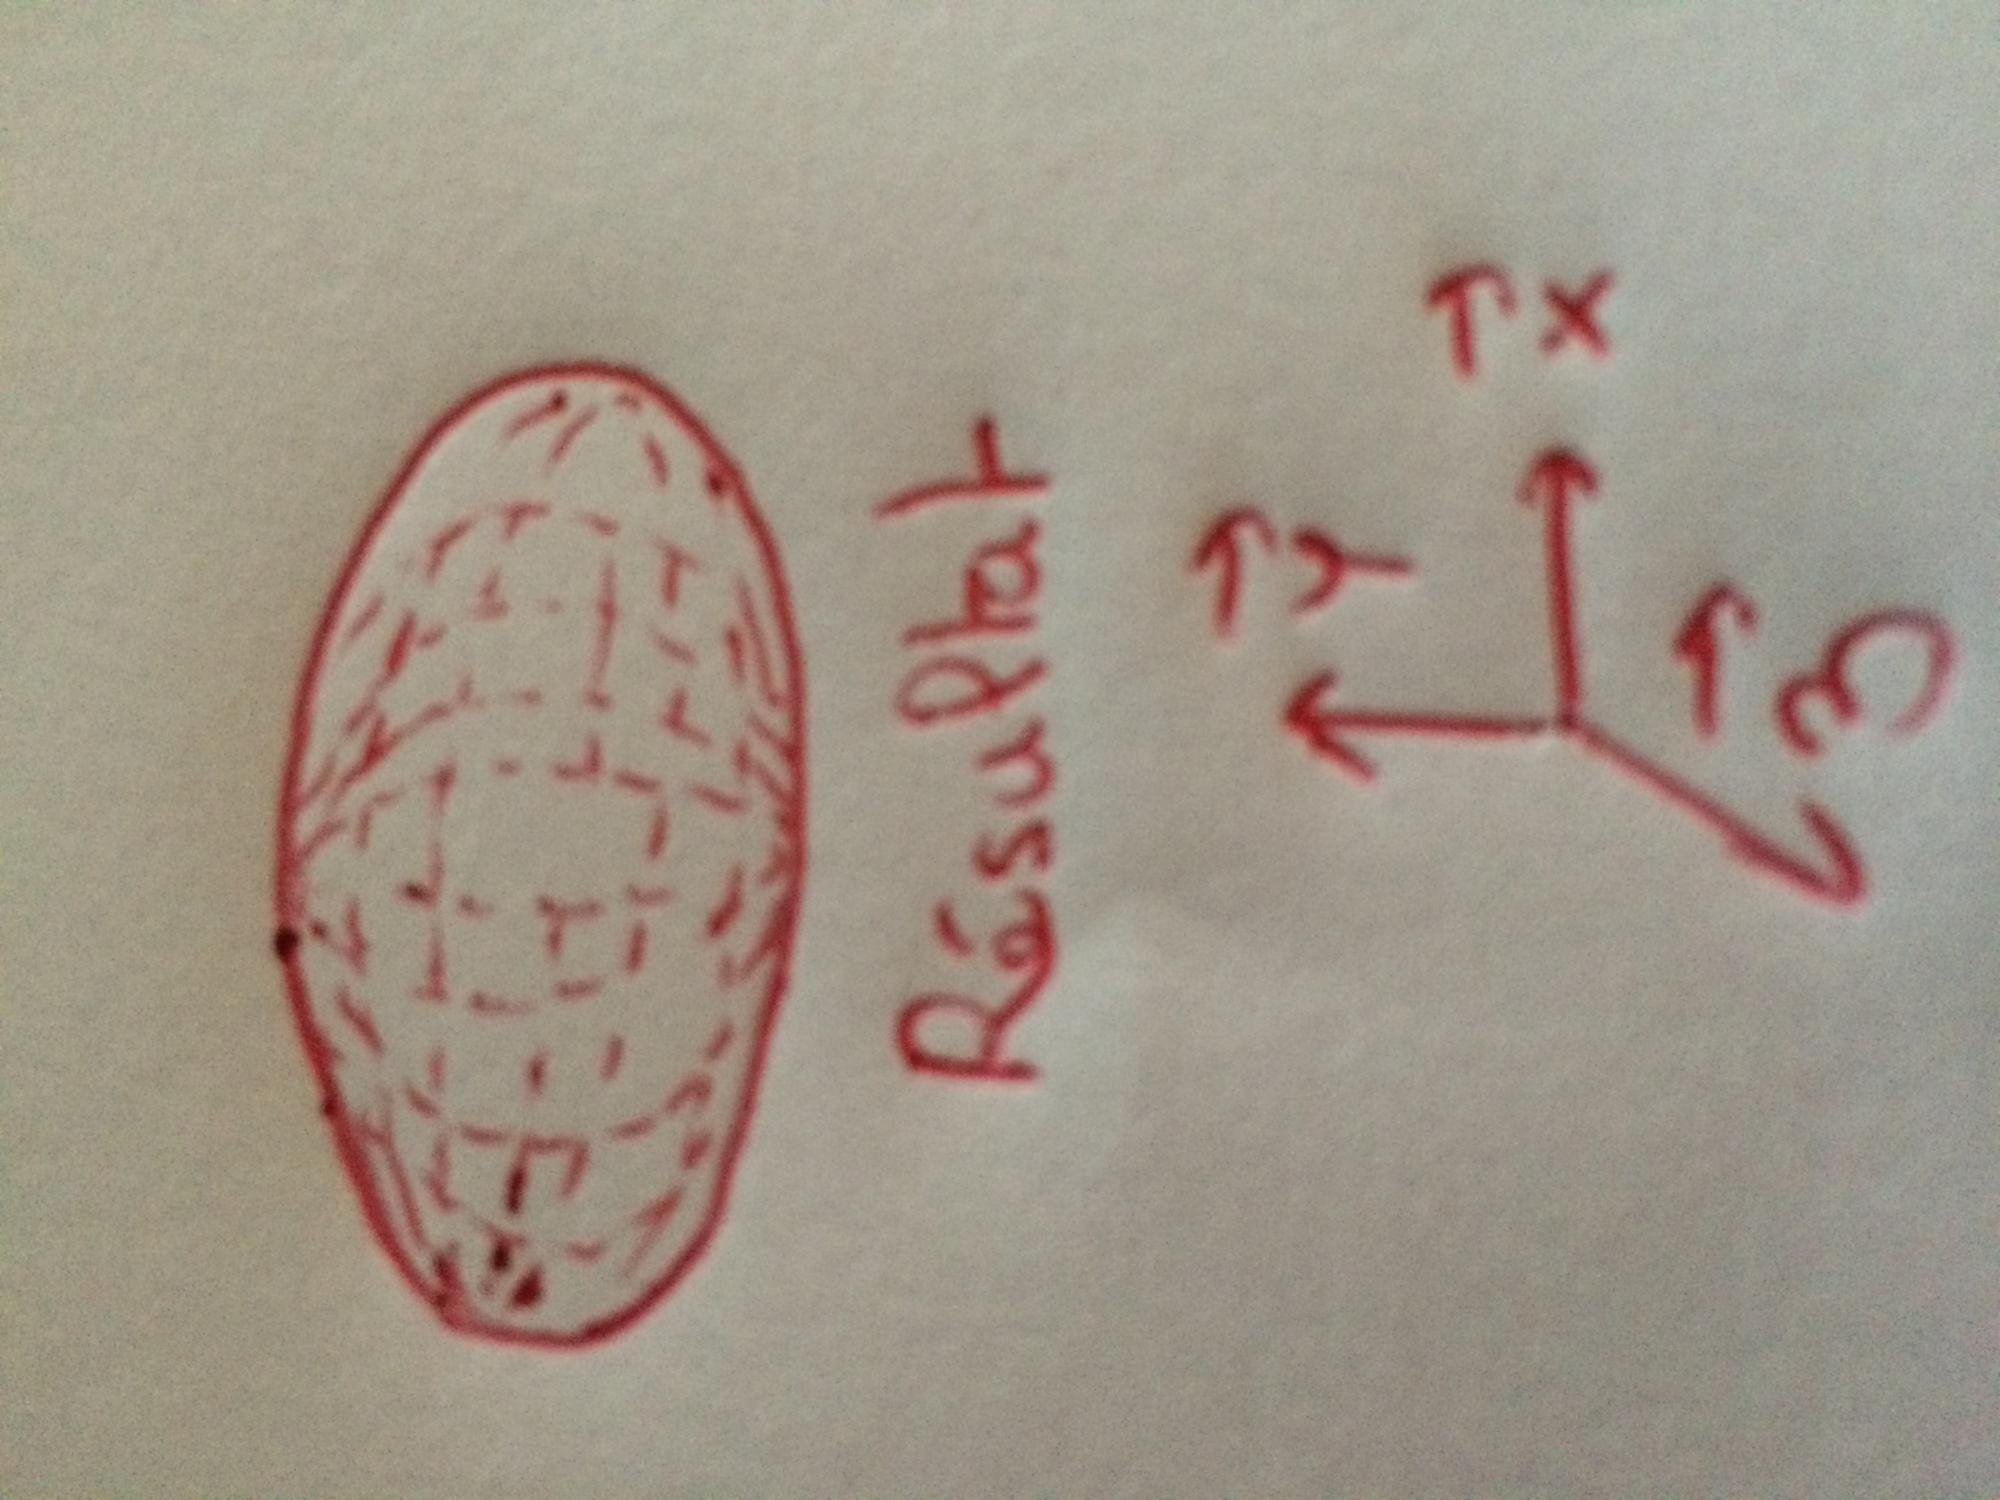 Résultat
y⃗
x⃗
z⃗